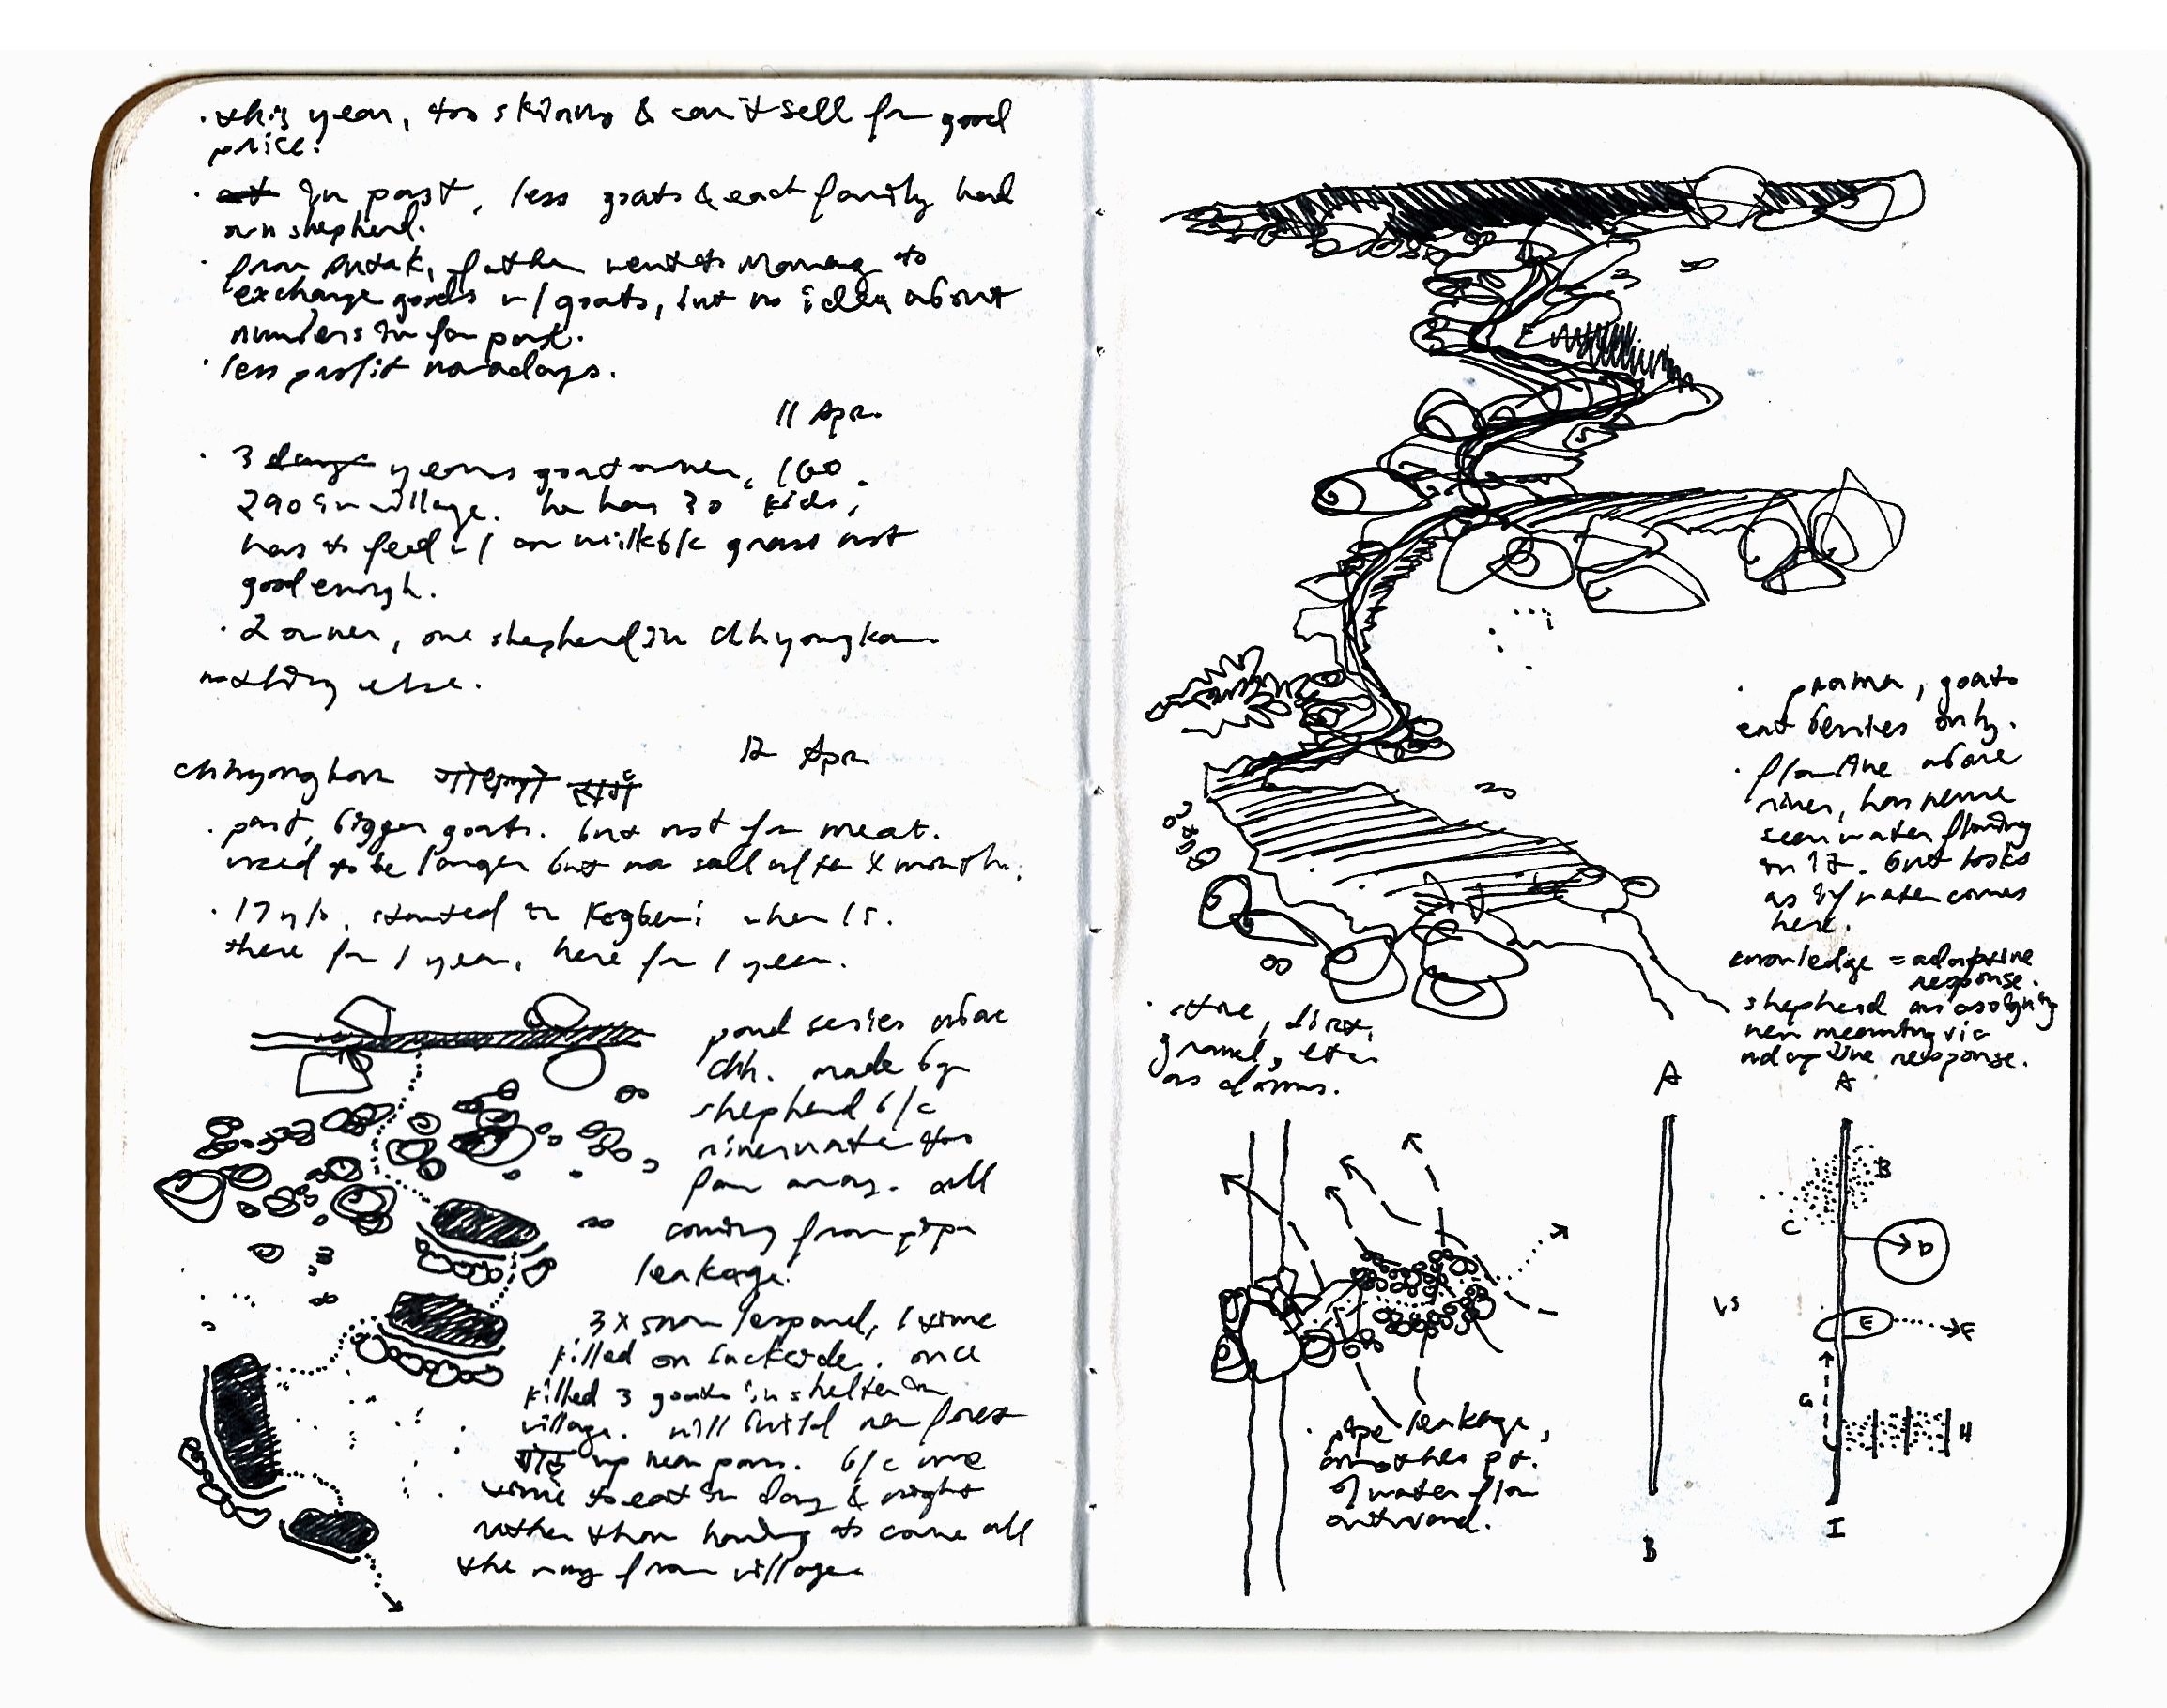 · this year, too skinny & can't sell for good
price.
· In past, less goats & each family had
own shepherd.
· from father went to to
exchange goods w/ goats, but no idea about
numbers in far past.
· less profit nowadays.
11 Apr.
· 3 years goat owner, 160.
290 in village. he has 30 kids,
has to feed w/ milk b/c grass not
good enough.
· 2 owner, one shepherd in Chhyongkar
nothing else.
12 Apr
Chhyongkar
· past, bigger goats. but not for meat.
used to be longer but now sell after month.
· 17 y/o, started in Kagbeni when 15.
there for 1 year, here for 1 year.
pond series above
Chh. made by
shepherd b/c
river water too
far away. all
coming from pipe
leakage.
3x snow leopard, 1 time
killed on backside. once
killed 3 goats in shelter in
village. will build new forest
गोठ up near pans. b/c
time to eat in day & night
rather than having to come all
the way from village
· prama, goats
eat berries only.
· above
river, has never
seen water flowing
on it. but looks
as if water comes
here.
knowledge = adaptive
response.
shepherd as assigning
new meaning via
adaptive response.
· stone, dirt,
gravel, etc
as dams.
A
A
B
C
D
vs
E
F
G
H
I
B
· pipe leakage,
another pt.
of water flow
outward.